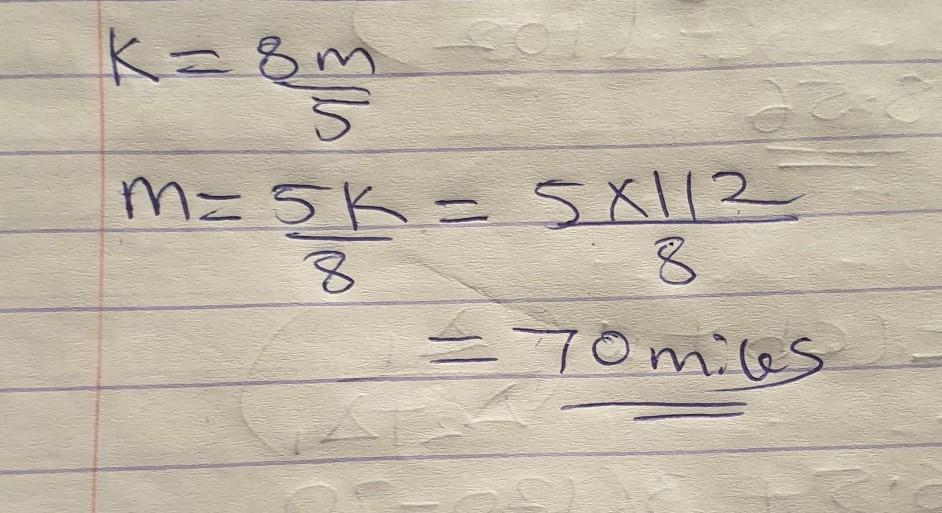 K = 8m/5
m = 5K/8 = 5×112/8
= 70 miles